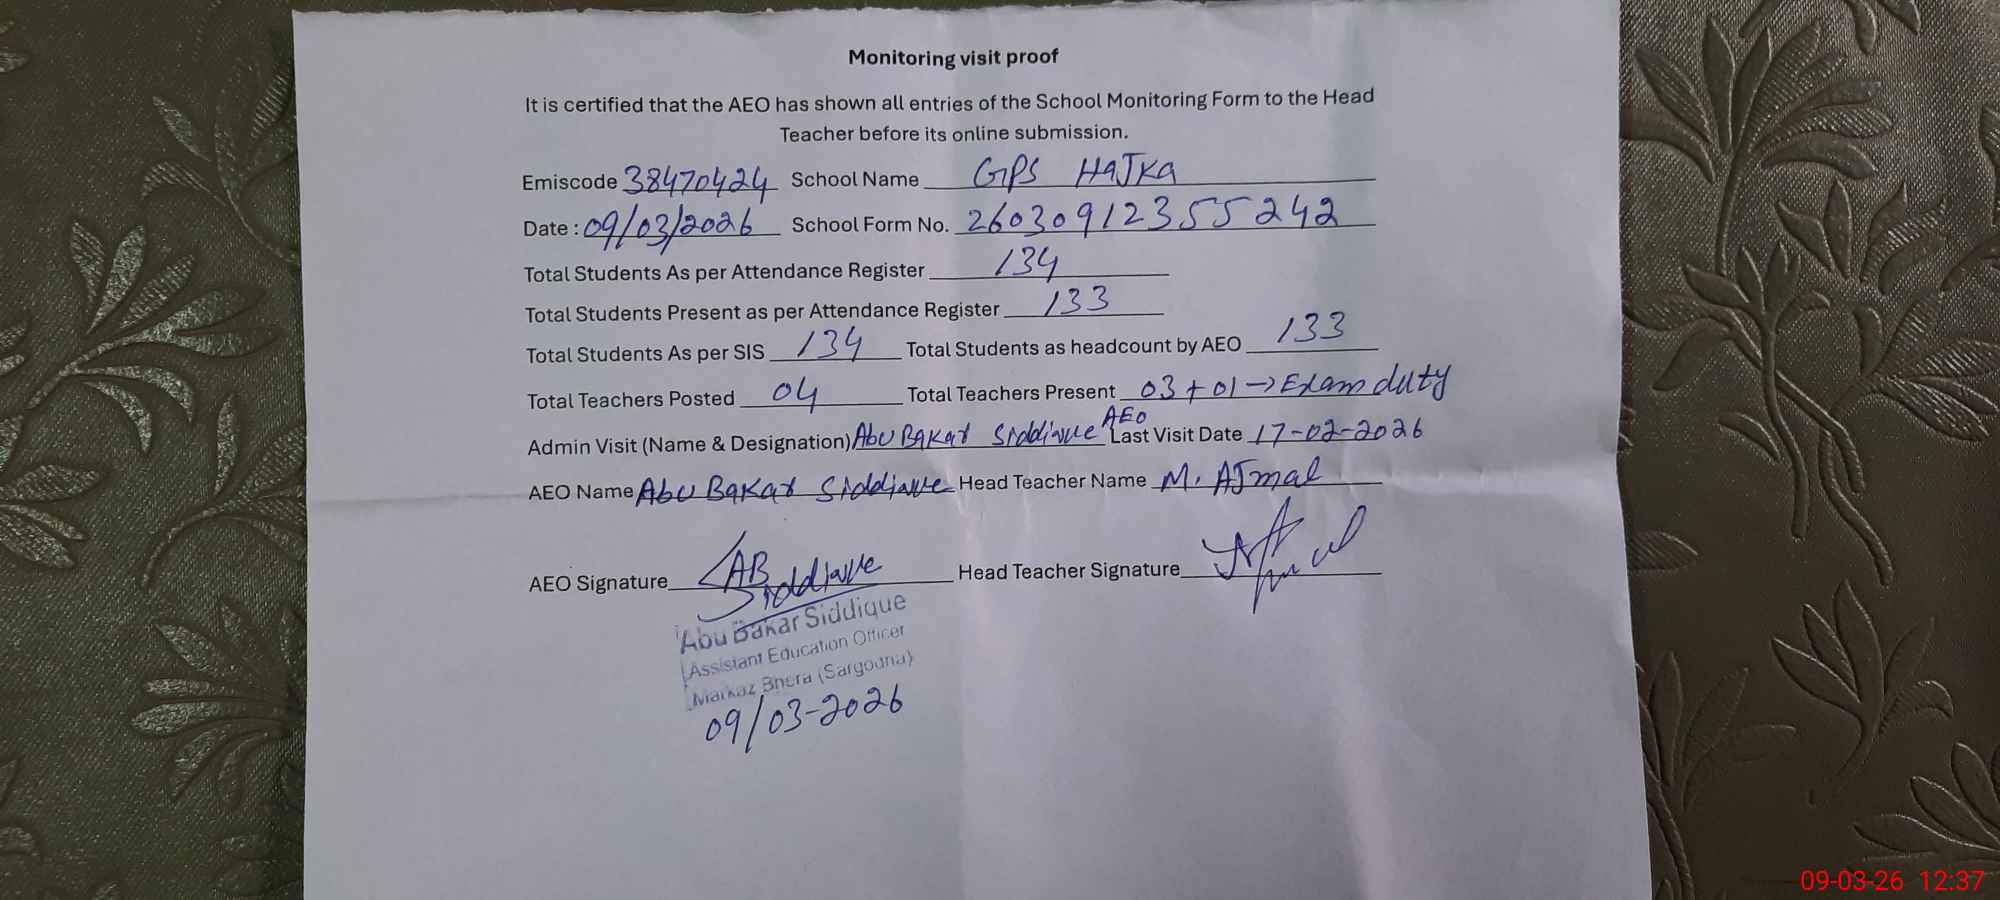 Monitoring visit proof
It is certified that the AEO has shown all entries of the School Monitoring Form to the Head
Teacher before its online submission.
Emiscode 38470424 School Name GPS HaJKa
Date : 09/03/2026 School Form No. 26030912355242
Total Students As per Attendance Register 134
Total Students Present as per Attendance Register 133
Total Students As per SIS 134 Total Students as headcount by AEO 133
Total Teachers Posted 04 Total Teachers Present 03 + 01 → Exam duty
Admin Visit (Name & Designation) Abu Bakar Siddique AEO Last Visit Date 17-02-2026
AEO Name Abu Bakar Siddique Head Teacher Name M. AJmal
AEO Signature AB Siddique Head Teacher Signature
Abu Bakar Siddique
Assistant Education Officer
Markaz Bhera (Sargodha)
09/03-2026
09-03-26 12:37